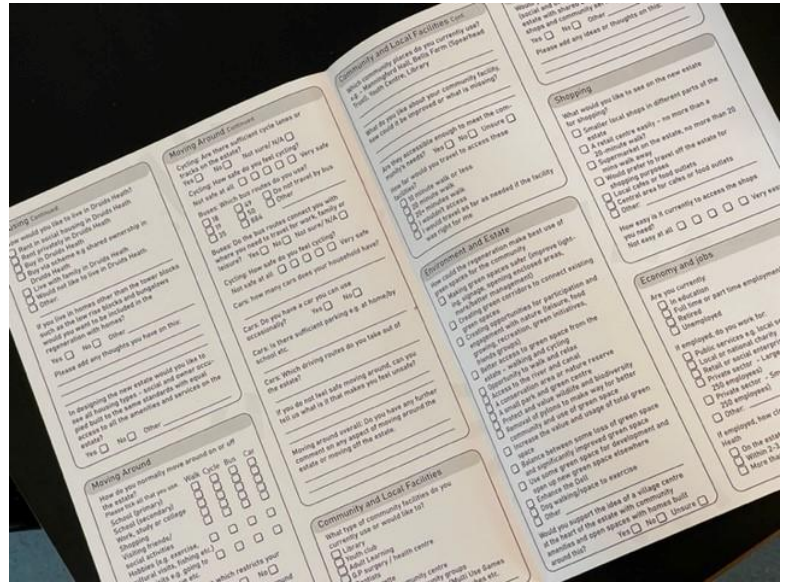 Housing Continued
How would you like to live in Druids Heath?
Rent in social housing in Druids Heath
Rent privately in Druids Heath
Buy in Druids Heath
Buy via scheme e.g shared ownership in
Druids Heath.
Live with family in Druids Heath
Would not like to live in Druids Heath
Other:
If you live in homes other than the tower blocks
such as the low rise blocks and bungalows
would you want to be included in the
regeneration with homes?
Yes No Other
Please add any thoughts you have on this:
In designing the new estate would you like to
see all housing types - social and owner occu-
pied built to the same standards with equal
access to all the amenities and services on the
estate?
Yes No Other
Moving Around
How do you normally move around on or off
the estate?
Please tick all that you use
Walk Cycle Bus Car
School (primary)
School (secondary)
Work, study or college
Shopping
Visiting friends/
social activities
Hobbies (e.g. exercise,
cultural visits, fishing etc.)
visits e.g. going to
which restricts your
No
Moving Around Continued
Cycling: Are there sufficient cycle lanes or
tracks on the estate?
Yes No Not sure/ N/A
Cycling: How safe do you feel cycling?
Not safe at all Very safe
Buses: Which bus routes do you use?
18 49 Do not travel by bus
11 50 Other
35 68A
Buses: Do the bus routes connect you with
where you need to travel for work, family or
leisure? Yes No Not sure/ N/A
Cycling: How safe do you feel cycling?
Not safe at all Very safe
Cars: how many cars does your household have?
Cars: Do you have a car you can use
occasionally? Yes No
Cars: Is there sufficient parking e.g. at home/by
school etc.
Cars: Which driving routes do you take out of
the estate?
If you do not feel safe moving around, can you
tell us what is it that makes you feel unsafe?
Moving around overall: Do you have any further
comment on any aspect of moving around the
estate or moving off the estate.
Community and Local Facilities
What type of community facilities do you
currently use or would like to?
Library
Youth club
Adult Learning
G.P surgery / health centre
Community and Local Facilities Cont.
Which community places do you currently use?
e.g - Manningford Hall, Bells Farm (Spearhead
Trust), Youth Centre, Library
What do you like about your community facility,
how could it be improved or what is missing?
Are they accessible enough to meet the com-
munity's needs? Yes No Unsure
How far would you travel to access these
facilities?
10 minute walk or less
20 minute walk
20+ minutes walk
I wouldn't access
I would travel as far as needed if the facility
was right for me
Environment and Estate
How could the regeneration make best use of
green spaces for the community
Making green spaces safer (improve light-
ing, signage, opening enclosed areas,
monitor/better management)
Creating green corridors to connect existing
green spaces
Creating opportunities for participation and
engagement with nature (leisure, food
growing, recreation, green initiatives,
friends groups)
Better access to green space from the
estate - walking and cycling
Opportunity to walk and relax
Access to the river and canal
A conservation area or nature reserve
A small park and green centre
Protect and value wildlife and biodiversity
Removal of pylons to make way for better
community and use of green space
Increase the value and usage of total green
space
Balance between some loss of green space
and significantly improved green space
Use some green space for development and
open up new green space elsewhere
Enhance the Dell
Dog walking/space to exercise
Other
Would you support the idea of a village centre
at the heart of the estate with community
amenities and open spaces with homes built
around this? Yes No Unsure
estate with shared
shops and community
Yes No Other
Please add any ideas or thoughts on this:
Shopping
What would you like to see on the new estate
for shopping?
Smaller local shops in different parts of the
estate
A retail centre easily - no more than a
20-minute walk?
Supermarket on the estate, no more than 20
mins walk away
Would prefer to travel off the estate for
shopping purposes
Local cafes or food outlets
Central area for cafes or food outlets
Other:
How easy is it currently to access the shops
you need?
Not easy at all Very easy
Economy and jobs
Are you currently:
In education
Full time or part time employment
Retired
Unemployed
If employed, do you work for:
Public services e.g. local
Local or national charities
Retail or social
Private sector - Large
250 employees)
Private sector - Sm
250 employees).
Other:
If employed, how
Heath
On the estate
Within 2-3
More than